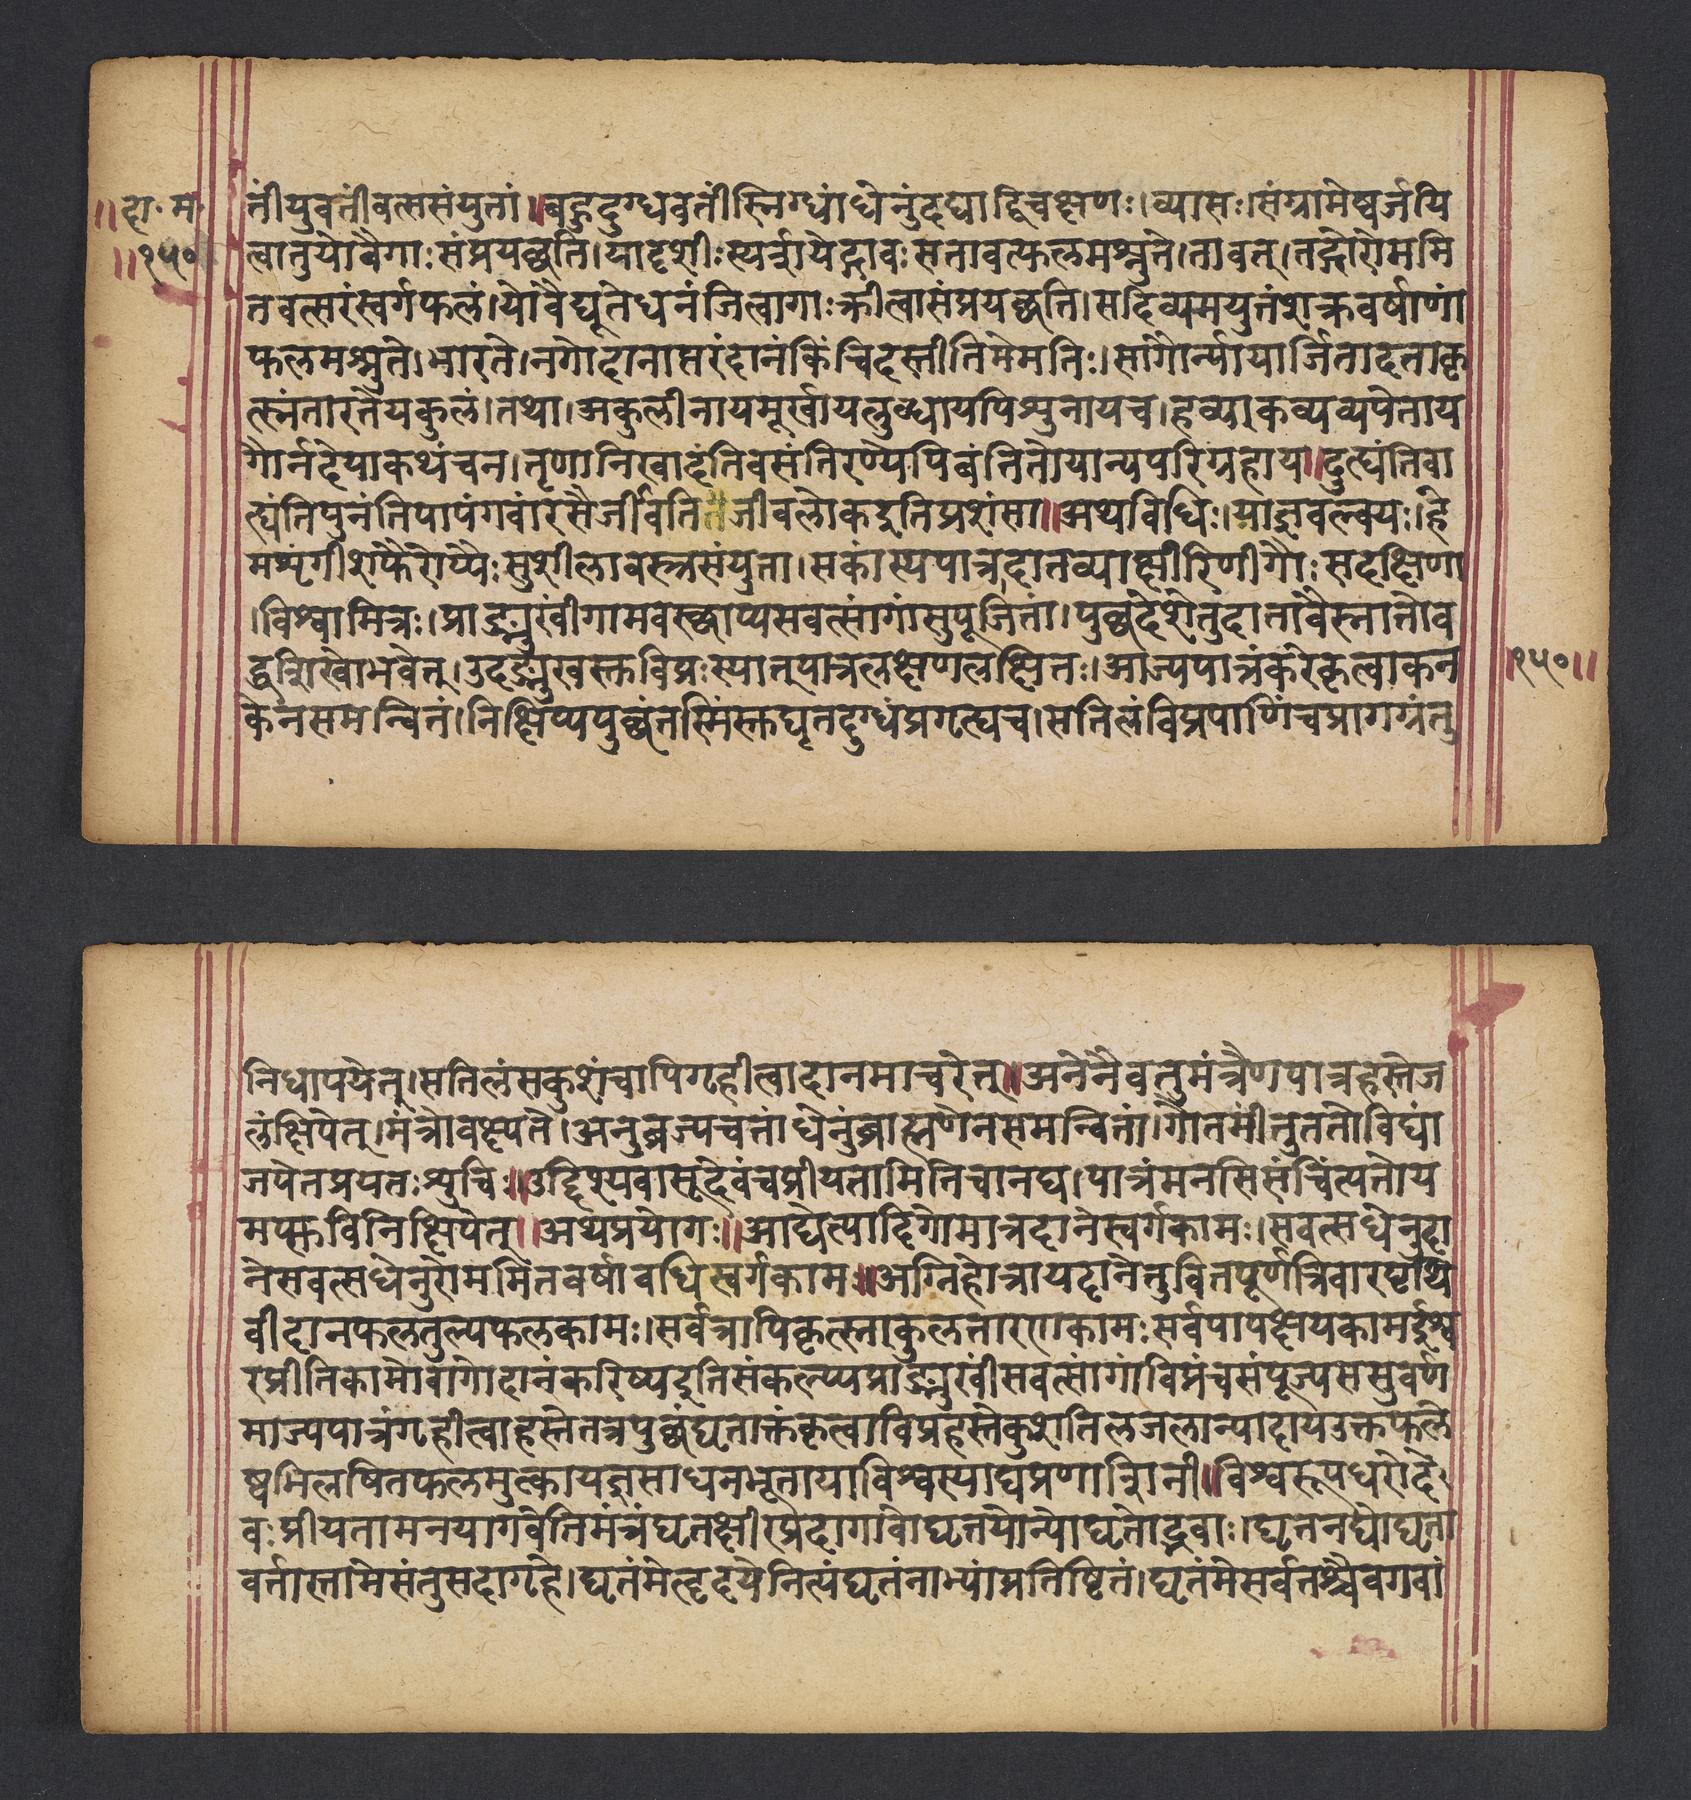 ॥दा॰म॰
॥१५०
तींयुवतींवत्ससंयुतां॥बहुदुग्धवतींस्निग्धांधेनुंदद्याद्विचक्षणः।व्यासः।संग्रामेष्वर्जयि
त्वातुयोवैगाःसंप्रयच्छति।यादृशीःस्पर्शयेद्गावःसतावत्फलमश्नुते।तावत्।तद्गोरोममि
तवत्सरंस्वर्गफलं।योवैद्यूतेधनंजित्वागाःक्रीत्वासंप्रयच्छति।सदिव्यमयुतंशक्रवर्षाणां
फलमश्नुते।भारते।नगोदानात्परंदानंकिंचिदस्तीतिमेमतिः।सागौर्न्यायार्जितादत्ताकृ
त्स्नंतारतेयकुलं।तथा।अकुलीनायमूर्खायलुब्धायपिशुनायच।हव्याकव्यव्यपेताय
गौर्नदेयाकथंचन।तृणानिखादंतिवसंतिरण्येपिबंतितोयान्यपरिग्रहाय॥दुह्यंतिवा
ह्यंतिपुनंतिपापंगवांरसैर्जीवतिजीवलोकइतिप्रशंसा॥अथविधिः।याज्ञवल्क्यः।हे
मशृंगीशफैरौप्यैःसुशीलावस्त्रसंयुता।सकांस्यपात्रदातव्याक्षीरिणीगौःसदक्षिणा
।विश्वामित्रः।प्राङ्मुखींगामवस्थाप्यसवत्सांगांसुपूजितां।पुच्छदेशेतुदातावैस्नातोब
द्धशिखोभवेत्।उदङ्मुखस्तुविप्रःस्यात्पात्रलक्षणलक्षितः।आज्यपात्रंकरेकृत्वाकन
केनसमन्वितं।निक्षिप्यपुच्छंतस्मिंस्तुघृतदुग्धंप्रगृह्यच।सतिलंविप्रपाणिंचप्रागग्रंतु
॥१५०॥
निधापयेत्।सतिलंसकुशंचापिगृहीत्वादानमाचरेत्॥अनेनैवतुमंत्रेणपात्रहस्तेज
लंक्षिपेत्।मंत्रोवक्ष्यते।अनुव्रज्यचतांधेनुंब्राह्मणेनसमन्वितां।गौतमींतुततोविद्यां
जपेतप्रयतःशुचिः॥उद्दिश्यवासूदेवंचप्रीयतामितिचानघ।पात्रंमनसिसंचिंत्यतोय
मप्सुविनिक्षिपेत्॥अथप्रयोगः॥आद्येत्यादिगोमात्रदानेस्वर्गकामः।सवत्सधेनुदा
नेसवत्सधेनुरोममितवर्षावधिस्वर्गकामः॥अग्निहोत्रायदानेतुवित्तपूर्णत्रिवारपृथि
वीदानफलतुल्यफलकामः।सर्वत्रापिकृत्स्नाकुलतारणकामःसर्वपापक्षयकामईश्व
रप्रीतिकामोवागोदानंकरिष्यइतिसंकल्प्यप्राङ्मुखींसवत्सांगांविप्रंचसंपूज्यससुवर्ण
माज्यपात्रंगृहीत्वाहस्तेतत्रपुच्छंघृताक्तंकृत्वाविप्रहस्तेकुशतिलजलान्यादायउक्तफले
ष्वभिलषितफलमुत्कायज्ञसाधनभूतायाविश्वस्याघप्रणाशिनी॥विश्वरूपधरोदे
वःप्रीयतामनयागवेतिमंत्रंघृतक्षीरप्रदागावोघृतयोन्योघृतोद्भवाः।घृतनद्योघृता
वर्तास्तामेसंतुसदागृहे।घृतंमेहृदयेनित्यंघृतंनाभ्यांप्रतिष्ठितं।घृतंमेसर्वतश्चैवगवां